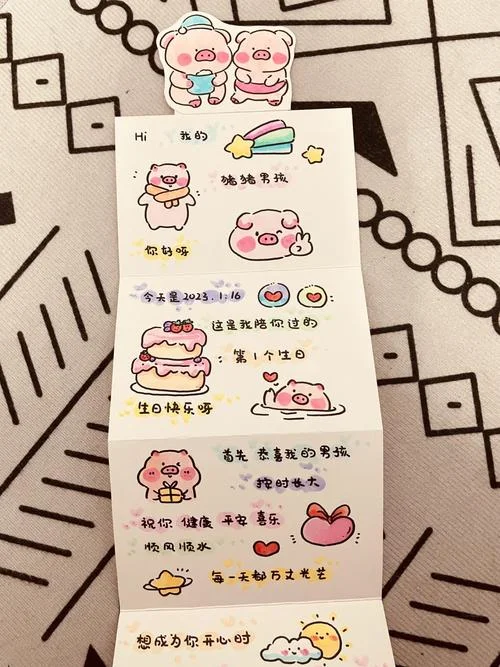 Hi 我的
猪猪男孩
你好呀
今天是2023.1.16
这是我陪你过的
第1个生日
生日快乐呀
首先 恭喜我的男孩
按时长大
祝你 健康 平安 喜乐
顺风顺水
每一天都万丈光芒
想成为你开心时